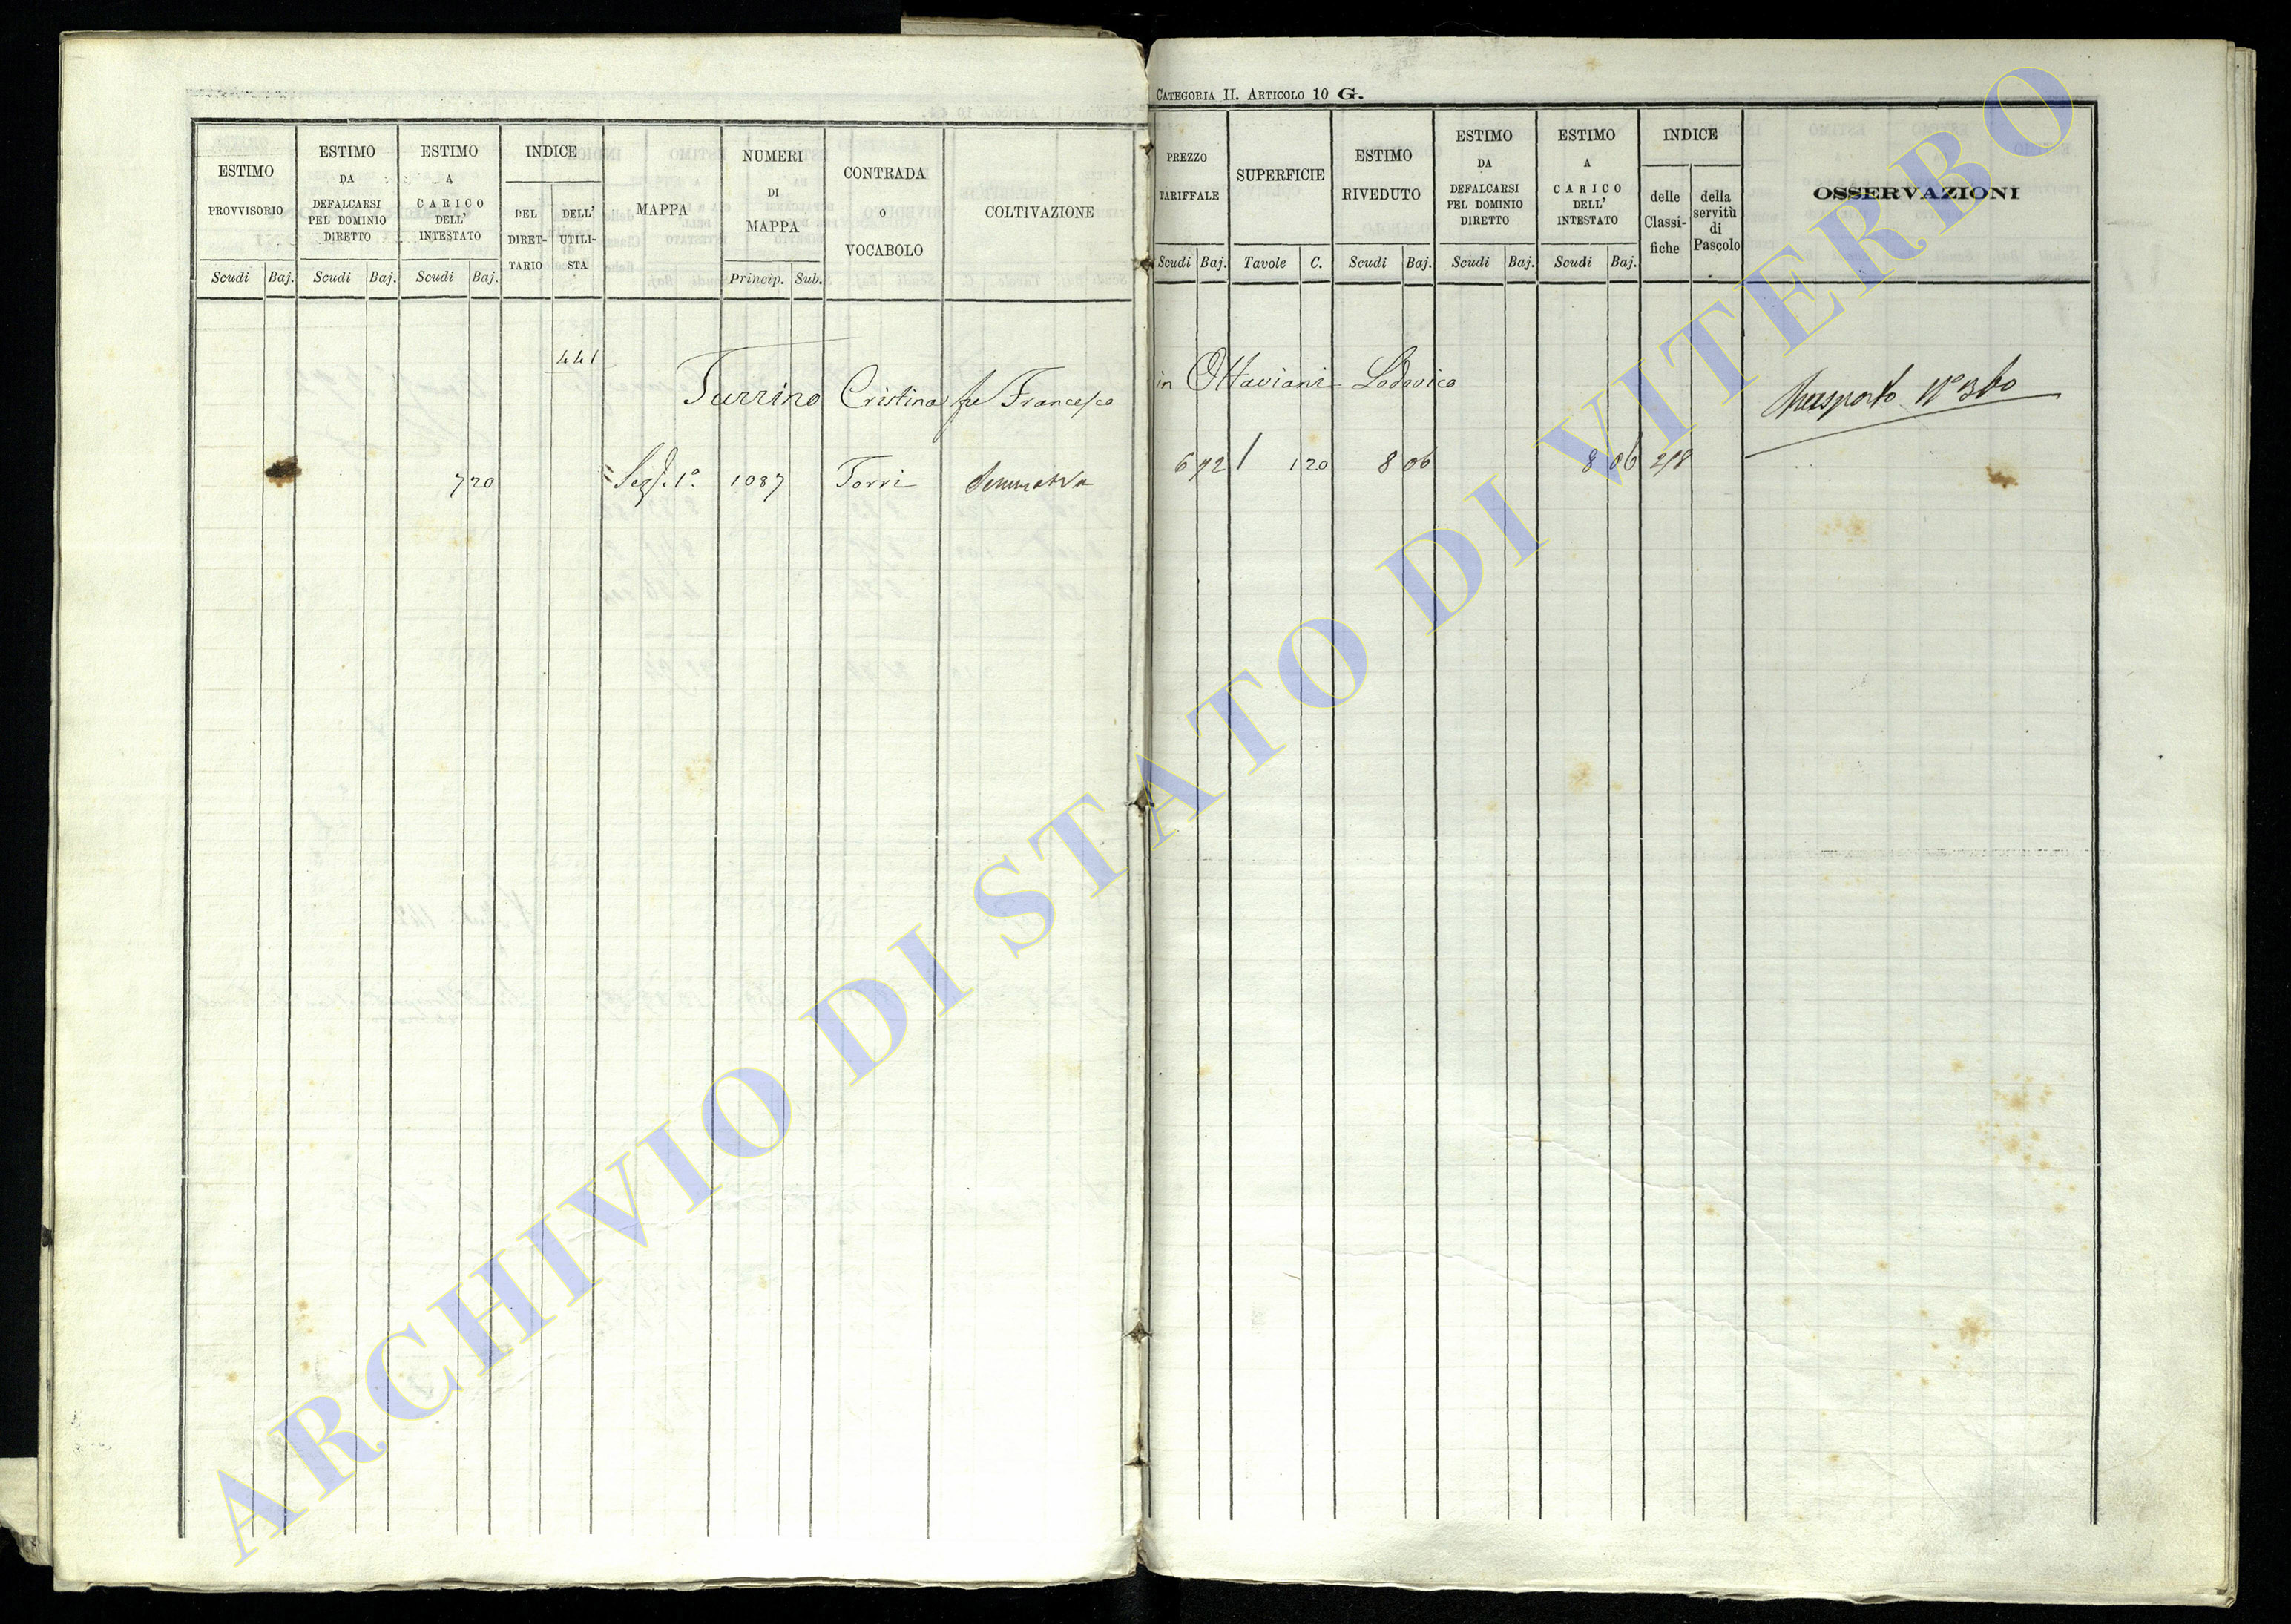 CATEGORIA II. ARTICOLO 10 G.
ESTIMO PROVVISORIO
Scudi Baj.
ESTIMO DA DEFALCARSI PEL DOMINIO DIRETTO
Scudi Baj.
ESTIMO A CARICO DELL' INTESTATO
Scudi Baj.
INDICE
DEL DIRET-TARIO
DELL' UTILI-STA
MAPPA
NUMERI DI MAPPA
Princip. Sub.
CONTRADA o VOCABOLO
COLTIVAZIONE
PREZZO TARIFFALE
Scudi Baj.
SUPERFICIE
Tavole C.
ESTIMO RIVEDUTO
Scudi Baj.
ESTIMO DA DEFALCARSI PEL DOMINIO DIRETTO
Scudi Baj.
ESTIMO A CARICO DELL' INTESTATO
Scudi Baj.
INDICE
delle Classi-fiche
della servitù di Pascolo
OSSERVAZIONI
441
Turrino Cristina fu Francesco in Ottaviani Lodovico
Trasporto N° 360
7 20 Sez. 1ª 1087 Torri Seminativa 6 72 1 1 20 8 06 8 06 218
ARCHIVIO DI STATO DI VITERBO